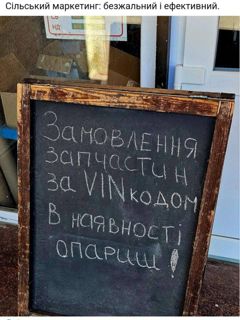 Сільський маркетинг: безжальний і ефективний.
Замовлення
запчастин
за VIN кодом
В наявності
опариш!